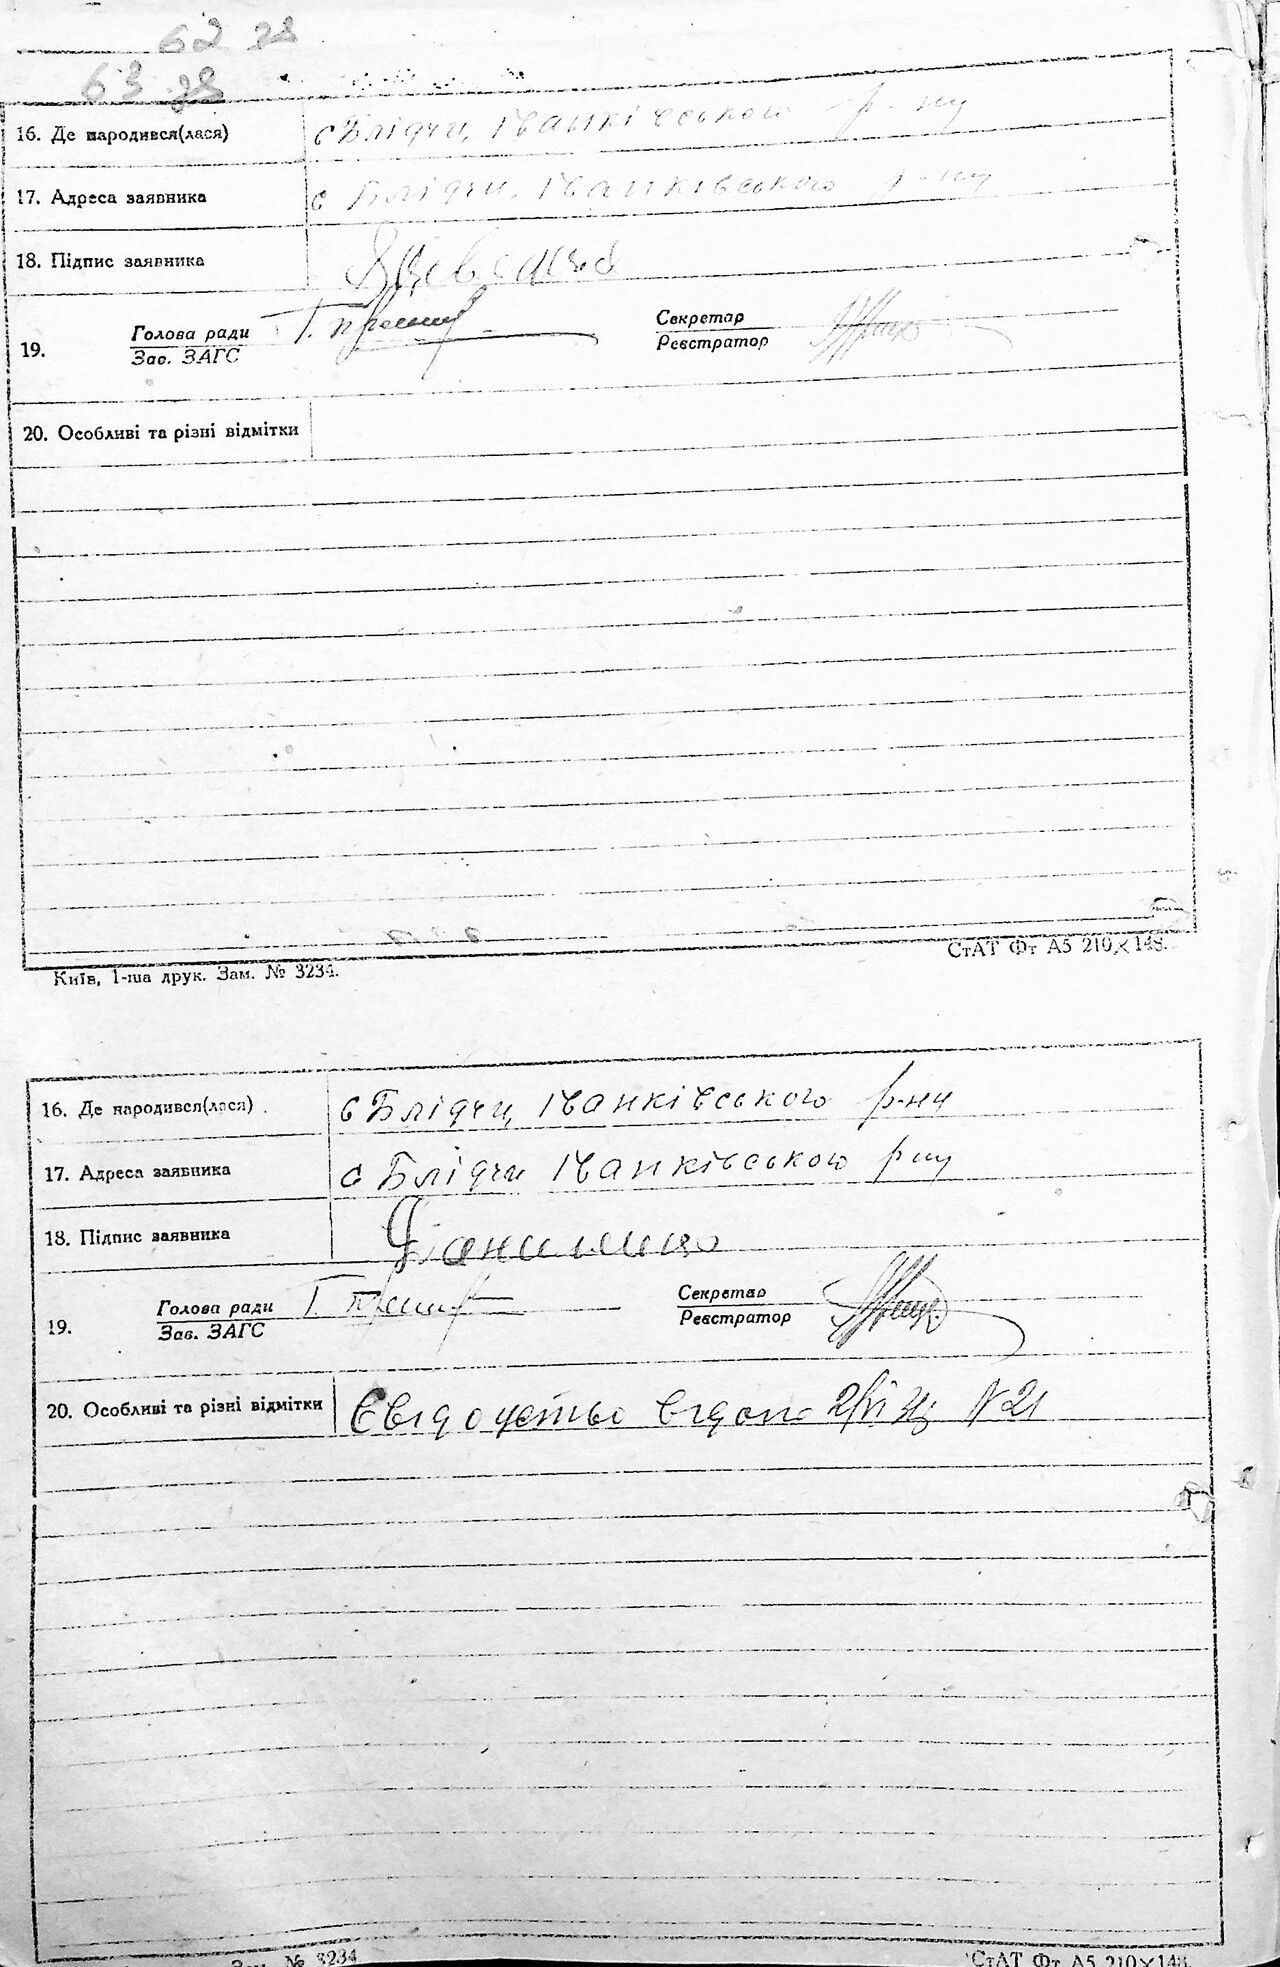 62 зв
63 зв
16. Де народився(лася) с Блідчи, Іванківського р-ну
17. Адреса заявника с Блідчи, Іванківського р-ну
18. Підпис заявника
19. Голова ради Секретар
Зав. ЗАГС Реєстратор
20. Особливі та різні відмітки
Київ, 1-ша друк. Зам. № 3234. СтАТ Фт А5 210×148.
16. Де народився(лася) с Блідчи, Іванківського р-ну
17. Адреса заявника с Блідчи Іванківського р ну
18. Підпис заявника
19. Голова ради Секретар
Зав. ЗАГС Реєстратор
20. Особливі та різні відмітки Свідоцтво видано N 21
Зам. № 3234 СтАТ Фт А5 210×148.